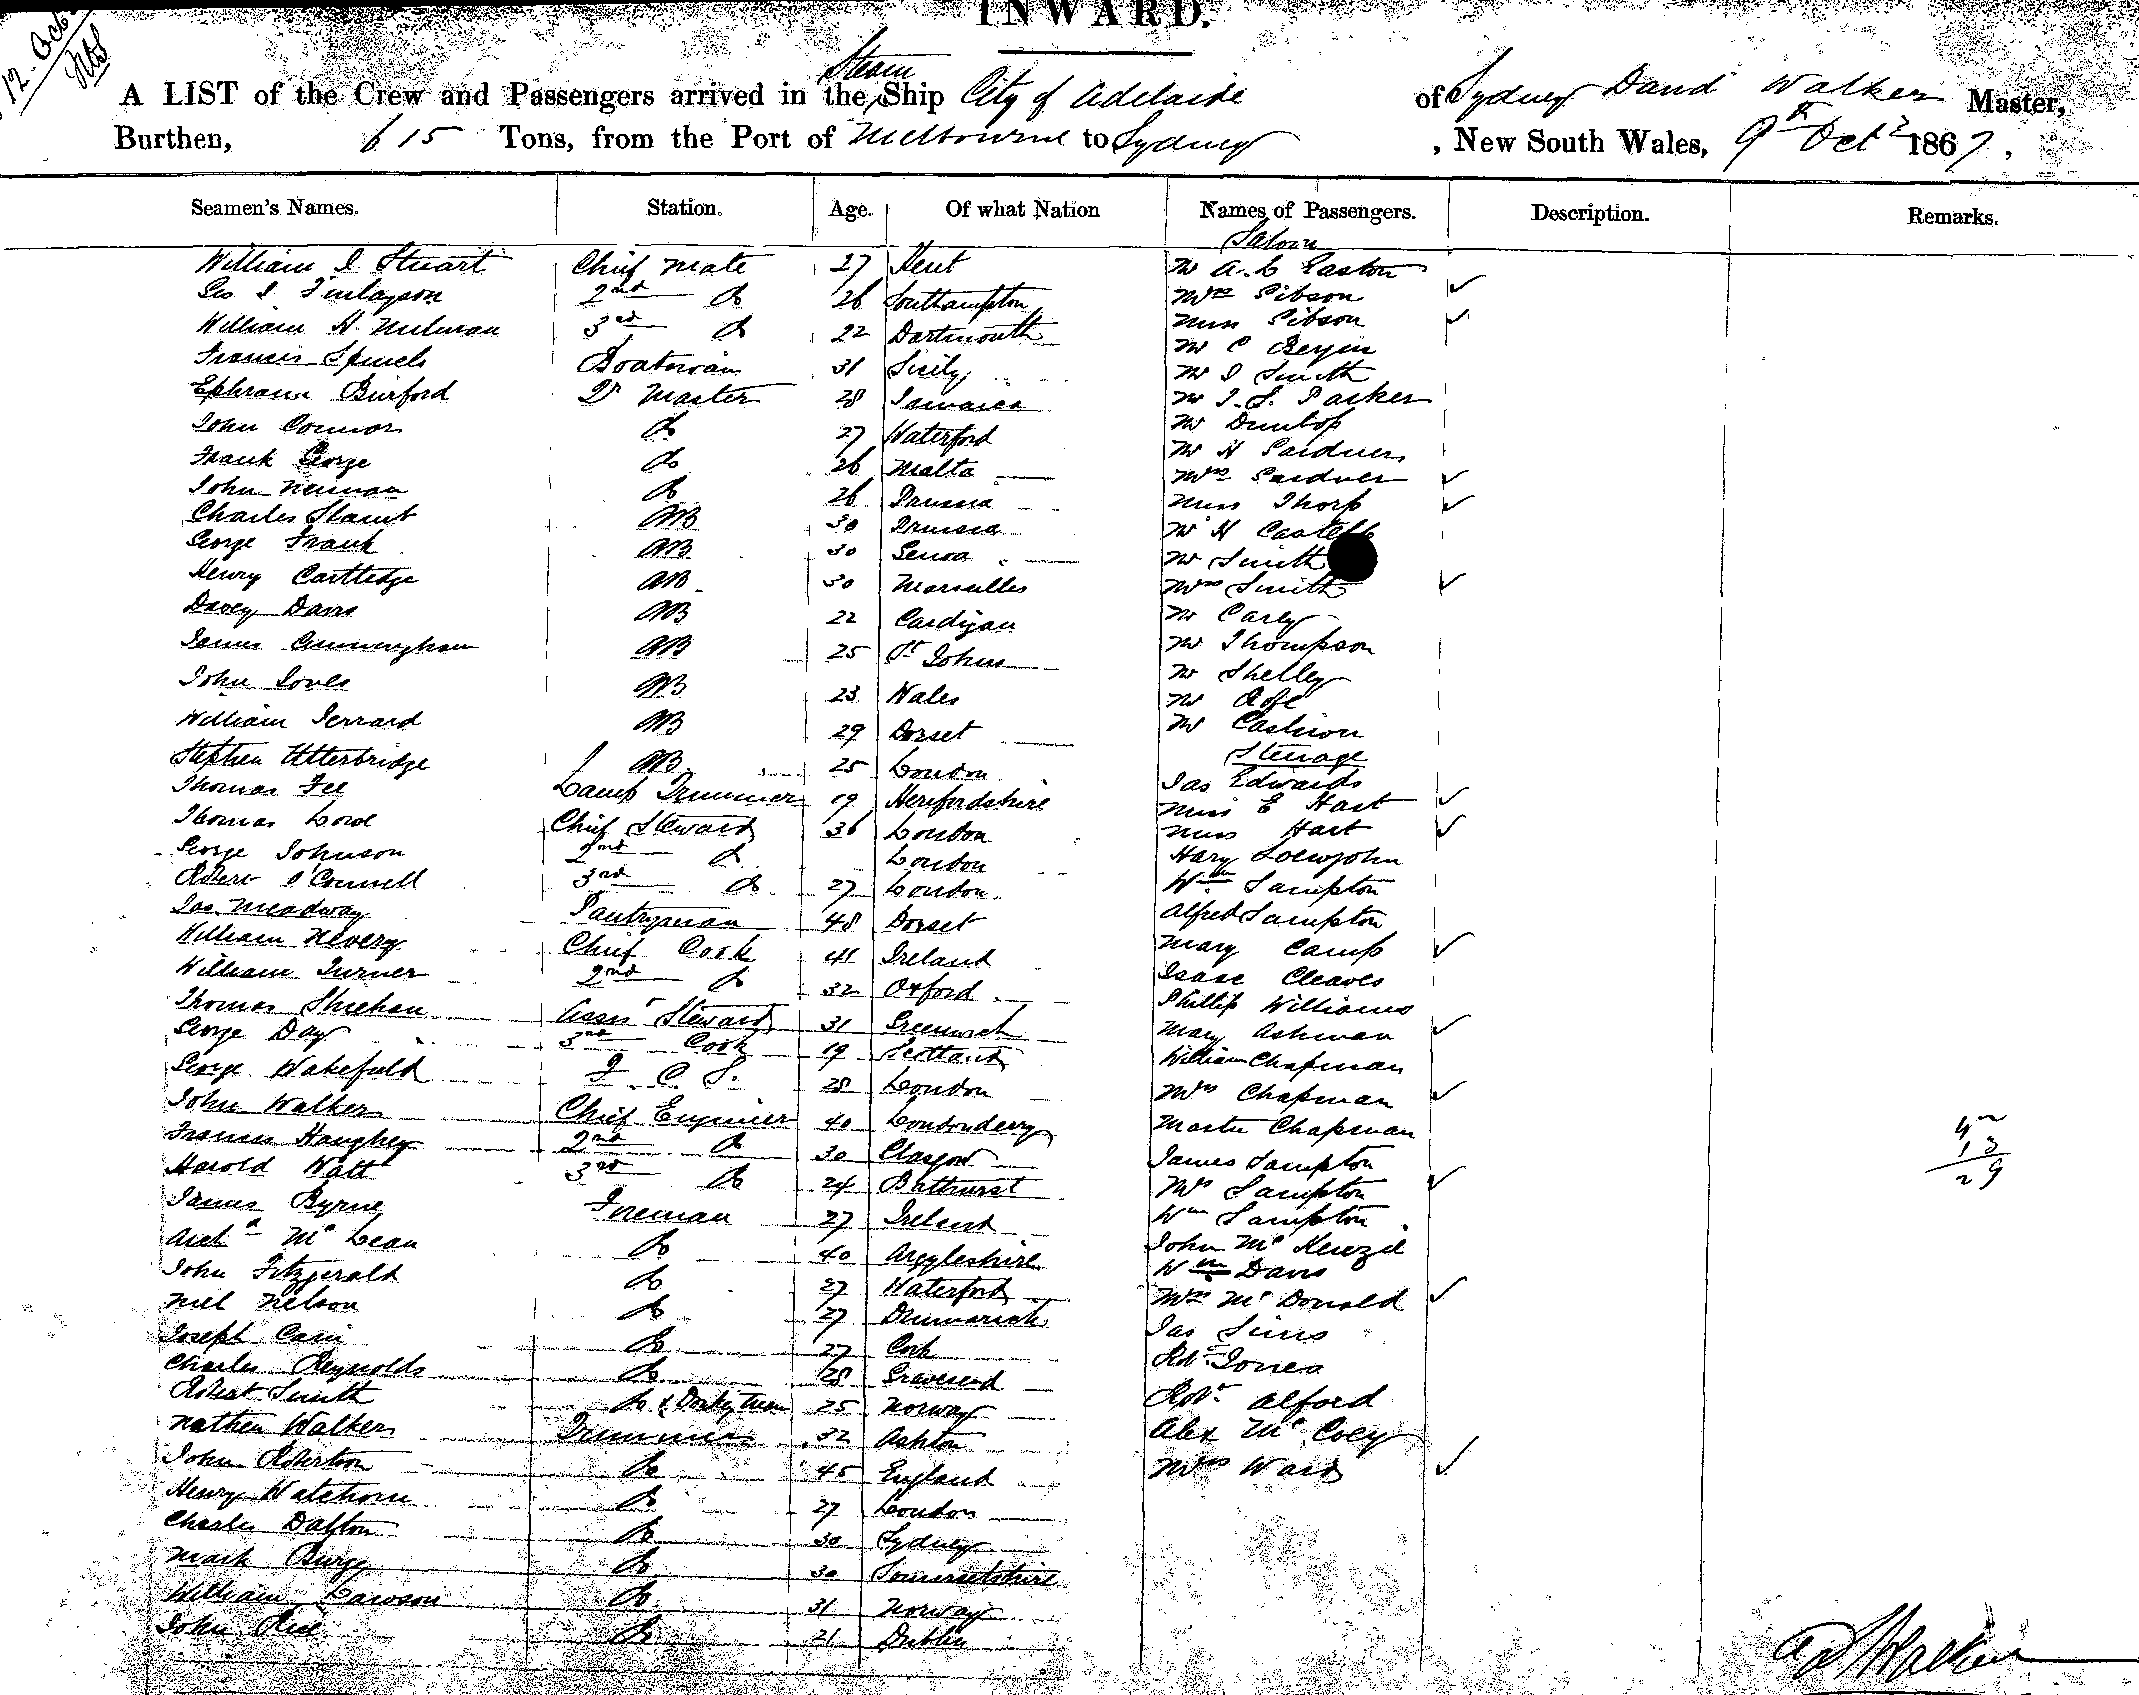 12 Oct
INWARD.
A LIST of the Crew and Passengers arrived in the Steam Ship City of Adelaide of Sydney David Walker Master,
Burthen, 615 Tons, from the Port of Melbourne to Sydney, New South Wales, 9th Oct 1867.
Seamen's Names. Station. Age. Of what Nation Names of Passengers. Description. Remarks.
Saloon
William I Stuart Chief Mate 27 Kent Mr A. C Easton
Geo I Finlayson 2nd Do 26 Southampton Mrs Gibson ✓
William H. Milman 3rd Do 22 Dartmouth Miss Gibson ✓
Francis Boatswain 31 Sicily Mr C
Ephraim Burford Qr Master 28 Jamaica Mr I Smith
John Connor Do 27 Waterford Mr J. S. Parker
Frank George Do 26 Malta Mr Dunlop
John Neuman Do 26 Prussia Mr H Gardner
Charles AB 30 Prussia Mrs Gardner ✓
George Frank AB 30 Genoa Miss Thorp ✓
Henry Cartledge AB 30 Marseilles Mr H
Davey Davis AB 22 Cardigan Mr Smith
James Cunningham AB 25 St Johns Mrs Smith ✓
John Jones AB 23 Wales Mr Carly
William Gerrard AB 29 Dorset Mr Thompson
Stephen Utterbridge AB 25 London Mr Shelley
Thomas Fee Lamp Trimmer 19 Herefordshire Mr
Thomas Love Chief Steward 36 London Mr Cashion
George Johnson 2nd Do London Steerage
Robert O'Connell 3rd Do 27 London Jas Edwards
Jas Meadway Pantryman 48 Dorset Miss E Hart ✓
William Nevery Chief Cook 41 Ireland Miss Hart ✓
William Turner 2nd Do 32 Oxford Hary
Thomas Sheehan Assist Steward 31 Greenwich Wm Sampton
George Day 3rd Cook 19 Scotland Alfred Sampton
George Wakefield F. C. S. 28 London Mary Camp ✓
John Walker Chief Engineer 40 Londonderry Isaac Cleaves
Francis Haughey 2nd Do 30 Glasgow Phillip Williams
Harold Watt 3rd Do 24 Bathurst Mary Ashman ✓
James Byrne Fireman 27 Ireland William Chapman
Archd McLean Do 40 Argyleshire Mrs Chapman ✓
John Fitzgerald Do 27 Waterford Master Chapman
Niel Nelson Do 27 Denmark James Sampton
Joseph Cain Do 27 Cork Mrs Sampton ✓
Charles Reynolds Do 28 Gravesend Wm Sampton
Robert Smith Do & Donkeyman 25 Norway John McKenzie
Nathen Walker Trimmer 32 Ashton Wm Davis
John Robertson Do 45 England Mrs McDonald ✓
Henry Watchorn Do 27 London Jas Sims
Charles Dalton Do 30 Sydney Robt Jones
Mark Burge Do 30 Somersetshire Robt Alford
William Lawson Do 31 Norway Alex McCoey
John Rice Do 21 Dublin Mrs Ward ✓
13
29
D Walker